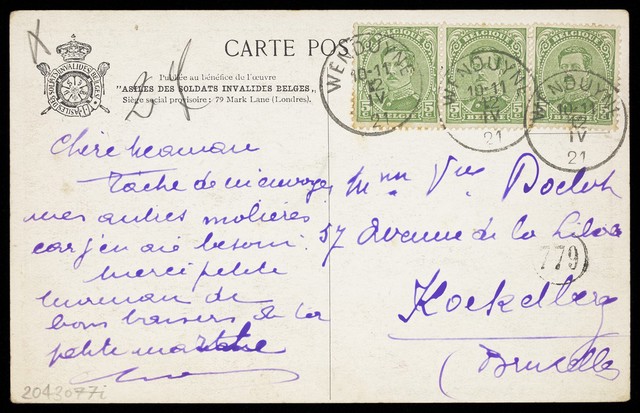 CARTE POS
Publiée au bénéfice de l'œuvre
"ASILES DES SOLDATS INVALIDES BELGES,,
Siège social provisoire : 79 Mark Lane (Londres).
BELGIQUE BELGIË
BELGIQUE BELGIË
BELGIQUE BELGIË
WENDUYNE
10-11
12
IV
21
WENDUYNE
10-11
12
IV
21
WENDUYNE
10-11
12
IV
21
Chère maman
Tache de m'envoyer
mes autres molières
car j'en ai besoin.
Merci petite
maman de
bons baisers de la
petite
Mme Vve
37 Avenue de la
779
Koekelberg
(Bruxelles
2042077i